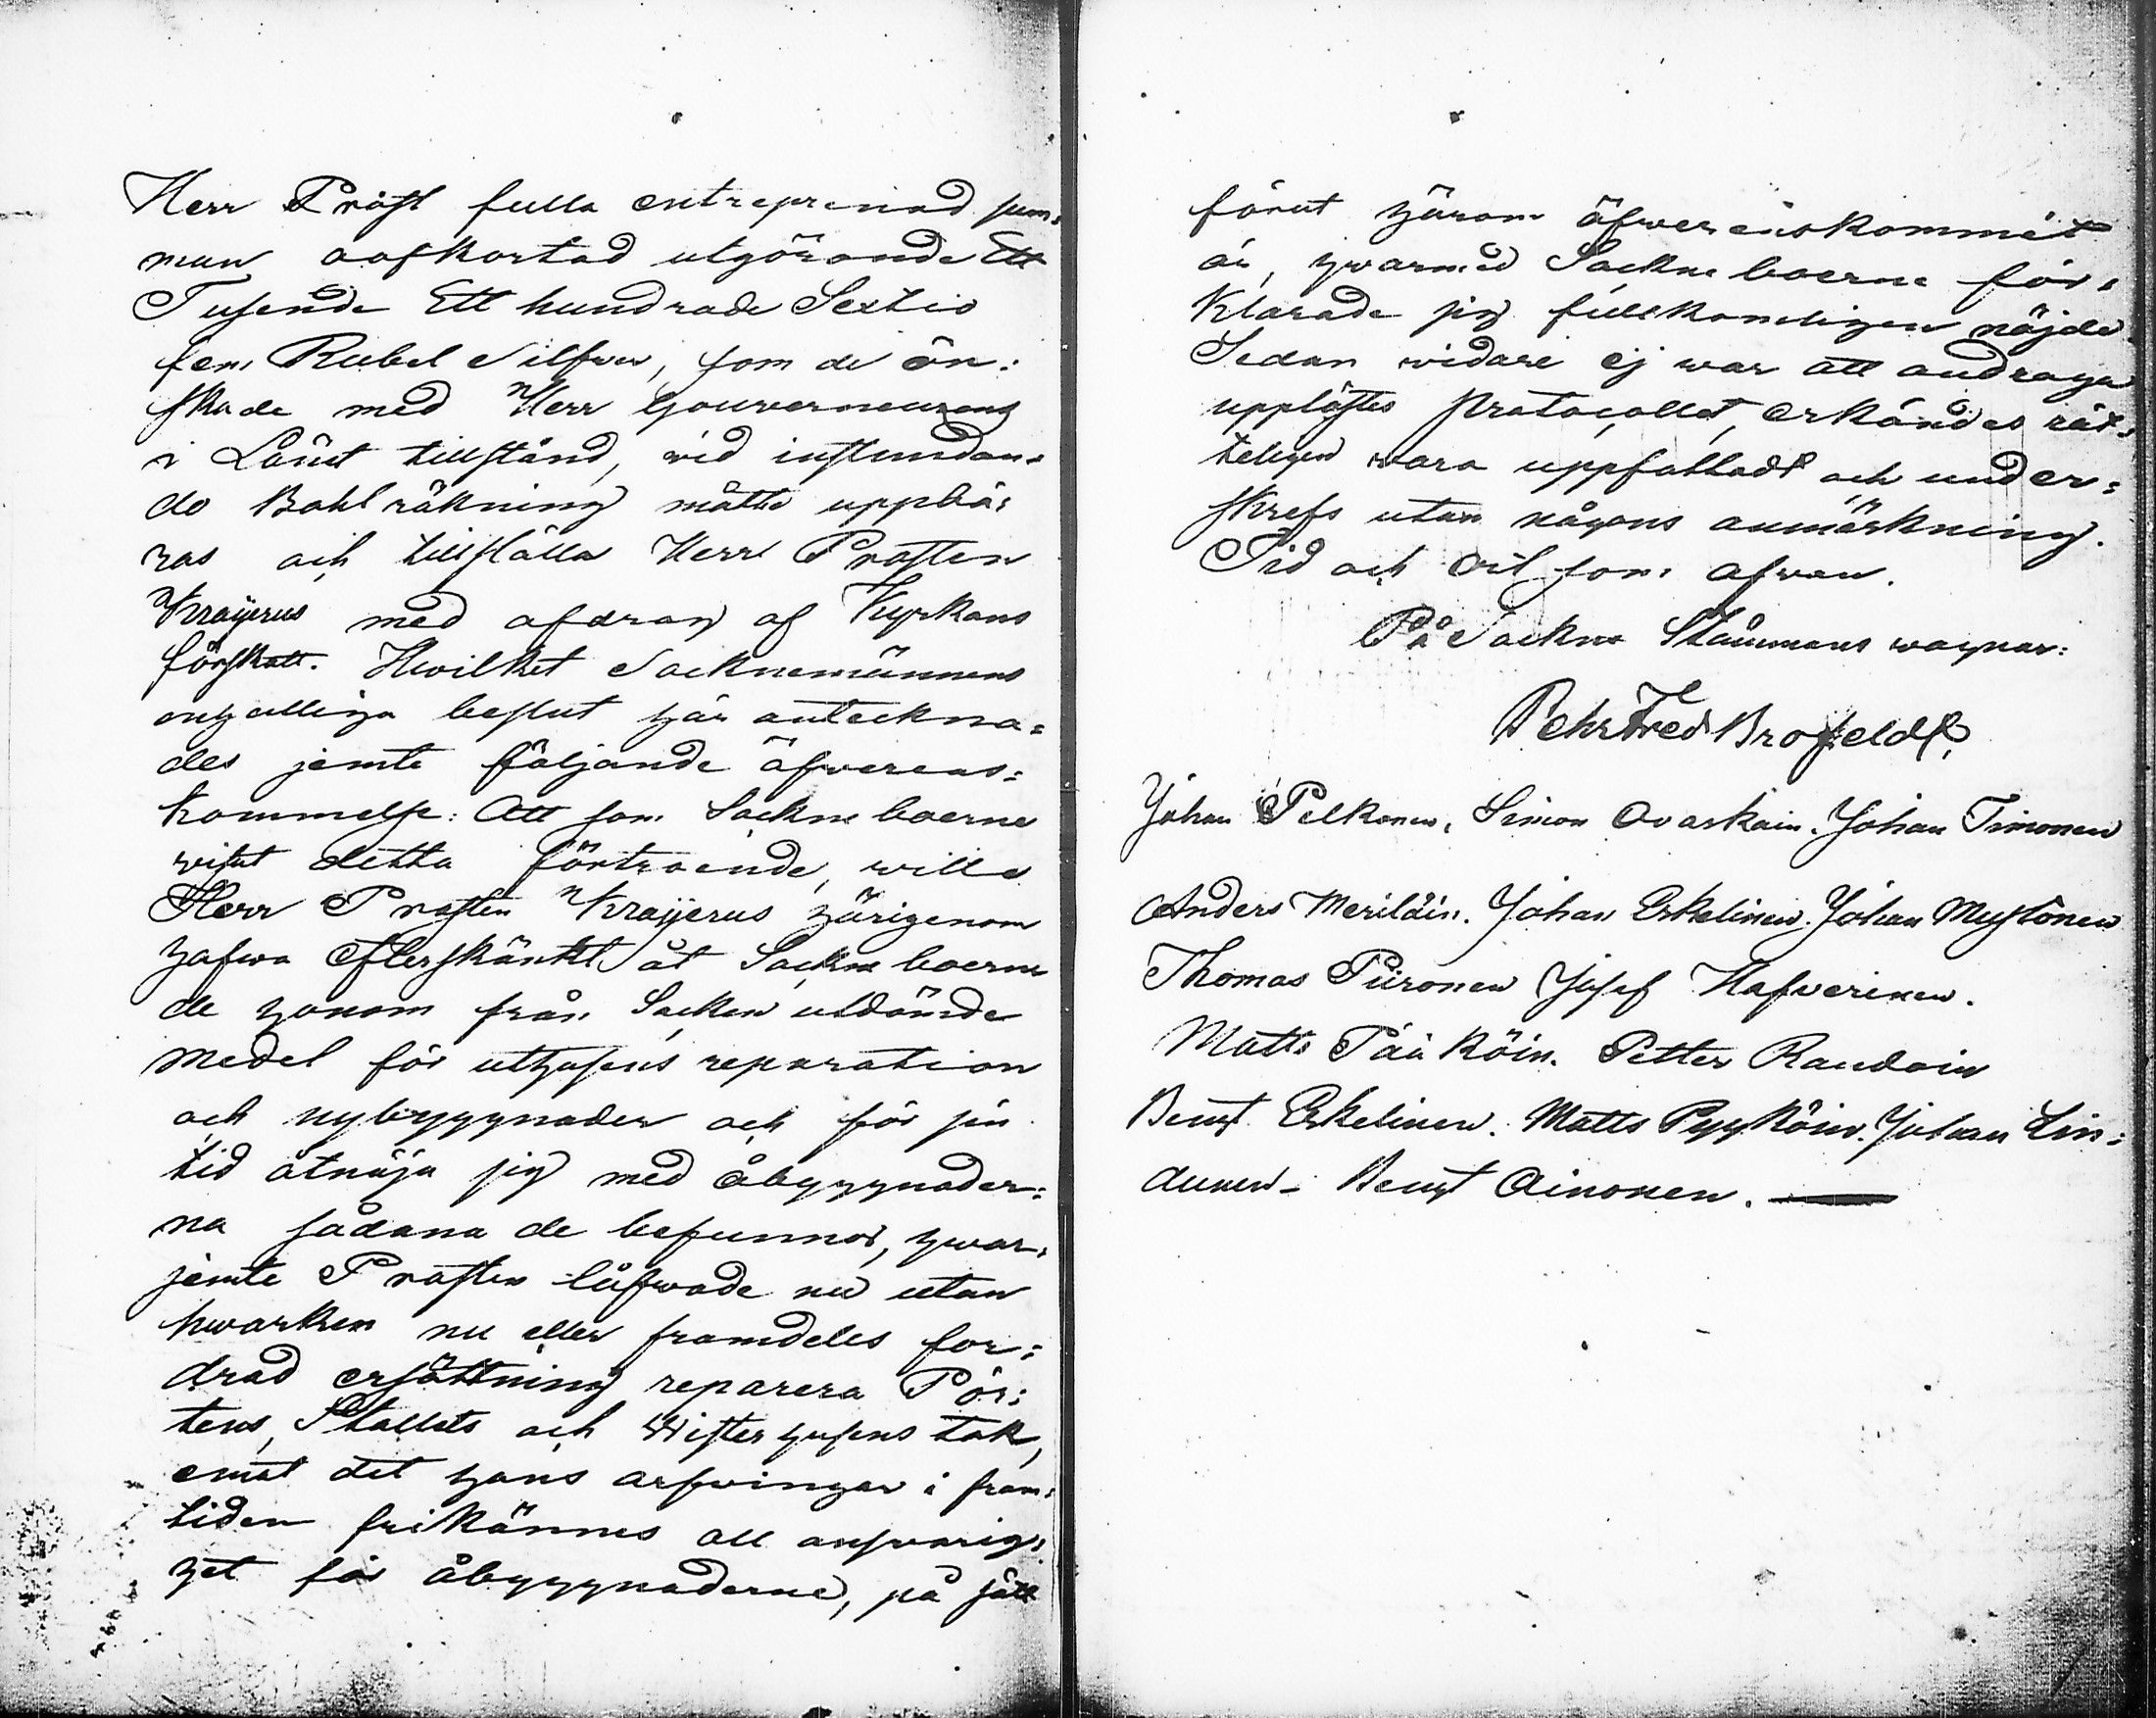 Herr Pråst fulla entreprenad sum=
man aafkortad utgörande Ett
Tusende Ett hundrade Sextio
fem Rubel Silfwer, som de ön=
skade med Herr Gouverneurens
i Länet tillstånd, vid instundan=
de Bohl räkning måtte uppbä=
ras och tillställa Herr Prosten
Krayerus med afdrag af Kyrkans
förskott. Hwilket Socknemännens
enhälliga beslut här anteckna=
des jemte följande öfverens=
kommelse: Att som Sockne boerne
visat detta förtroende, wille
Herr Prosten Krayerus härigenom
hafwa efterskänkt åt Sockne boerne
de honom från Socken utdömde
medel för uthusens reparation
och nybyggnader och för sin
tid åtnöja sig med åbyggnader=
na sådana de befunnos, hwar=
jemte Prosten låfwade nu utan
hwarken nu eller framdeles for=
drad ersättning reparera Pör=
tens, Stallets och Wisterhusens tak,
emot det hans arfwingar i fram=
tiden frikännes all answarig=
het för åbyggnaderne, på sätt
förut härom öfwerenskommet
är, hwarmed Sockne boerne för=
klarade sig fullkomligen nöjde.
Sedan widare ej war att andraga
upplästes Protocollet, erkändes rät=
teligen wara uppfattadt och under=
skrefs utan någons anmärkning.
Tid och Ort som ofwan.
På Sockne Stämmans wägnar:
Pehr Fred Brofeldt,
Johan Pelkonen, Simon Ovaskain. Johan Timonen
Anders Meriläin. Johan Eskelinen. Johan Mustonen
Thomas Piironen Josef Hafverinen.
Matts Pääköin. Petter Raudain
Bengt Eskelinen. Matts Pyyköin. Johan Lin=
dunen - Bengt Ainonen.